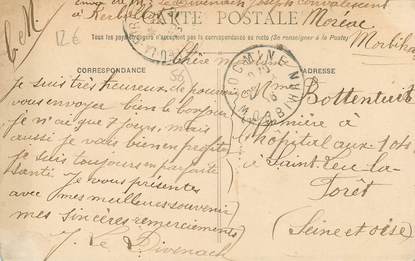 envoi de Mr Le Divenach Joseph convalescent
à
CARTE POSTALE
Tous les pays étrangers n'acceptent pas la correspondance au recto (Se renseigner à la Poste)
Morbihan
12 €
CORRESPONDANCE
ADRESSE
Chère Madame
Je suis très heureux de pouvoir
vous envoyer bien le bonjour
Je n'ai que 7 jours, mais
aussi je vais bien en profiter
je suis toujours en parfaite
santé Je vous présente
avec mes meilleurs souvenir
mes sincères remerciements
J. Le Divenach
Mme Bottentuit
infirmière à
l'hôpital aux. 104
à Saint-Leu-la-
Forêt
(Seine et oise)